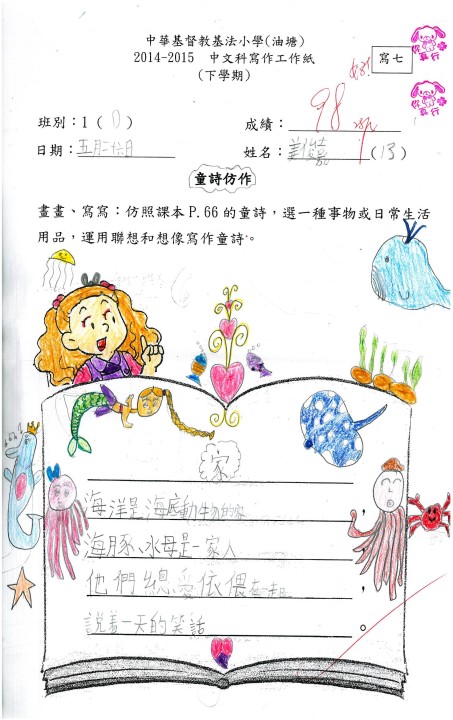 中華基督教基法小學(油塘)
2014-2015 中文科寫作工作紙
(下學期)
寫七
你真行
你真行
班別：1( D )
成績：98
日期：五月二十六日
姓名：(13)
童詩仿作
畫畫、寫寫：仿照課本P.66的童詩，選一種事物或日常生活
用品，運用聯想和想像寫作童詩。
家
海洋是海底動物的家，
海豚、水母是一家人
他們總愛依偎在一起，
說着一天的笑話。